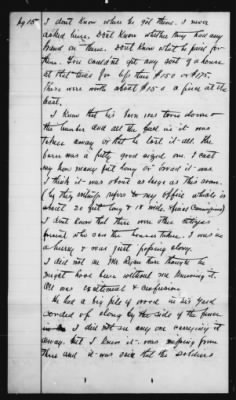 by 15 I don't know where he got them. I never
asked him. Don't know whether they had any
brand on them. Don't know what he paid for
them. You couldn't get any sort of a horse
at that time for less than $150 or $175.
There were worth about $150 a piece at the
least.
I know that his barn was torn down &
the lumber and all the fack in it was
taken away or that he lost it all. The
barn was a pretty good sized one. I can't
say how many feet long or broad it was.
I think it was about as large as this room.
(by this witness refers to my office which is
about 20 feet long & 18 wide, Special Commissioner)
I don't know that there were other
who saw the lumber taken. I was in
a hurry & was just passing along.
I did not see Mr. Ryan there though he
might have been without me knowing it.
All was excitement & confusion
He had a big pile of wood in his yard
corded up along by the side of the fence
I did not see any one carrying it
away. But I know it was missing from
there and it was said that the soldiers